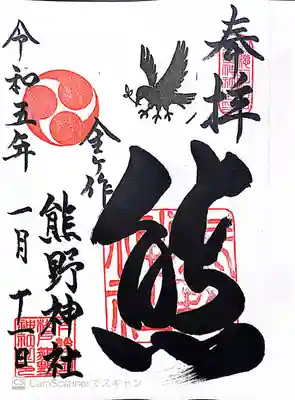 奉拝
熊
金ヶ作
熊野神社
令和五年
一月十一日
CS CamScannerでスキャン